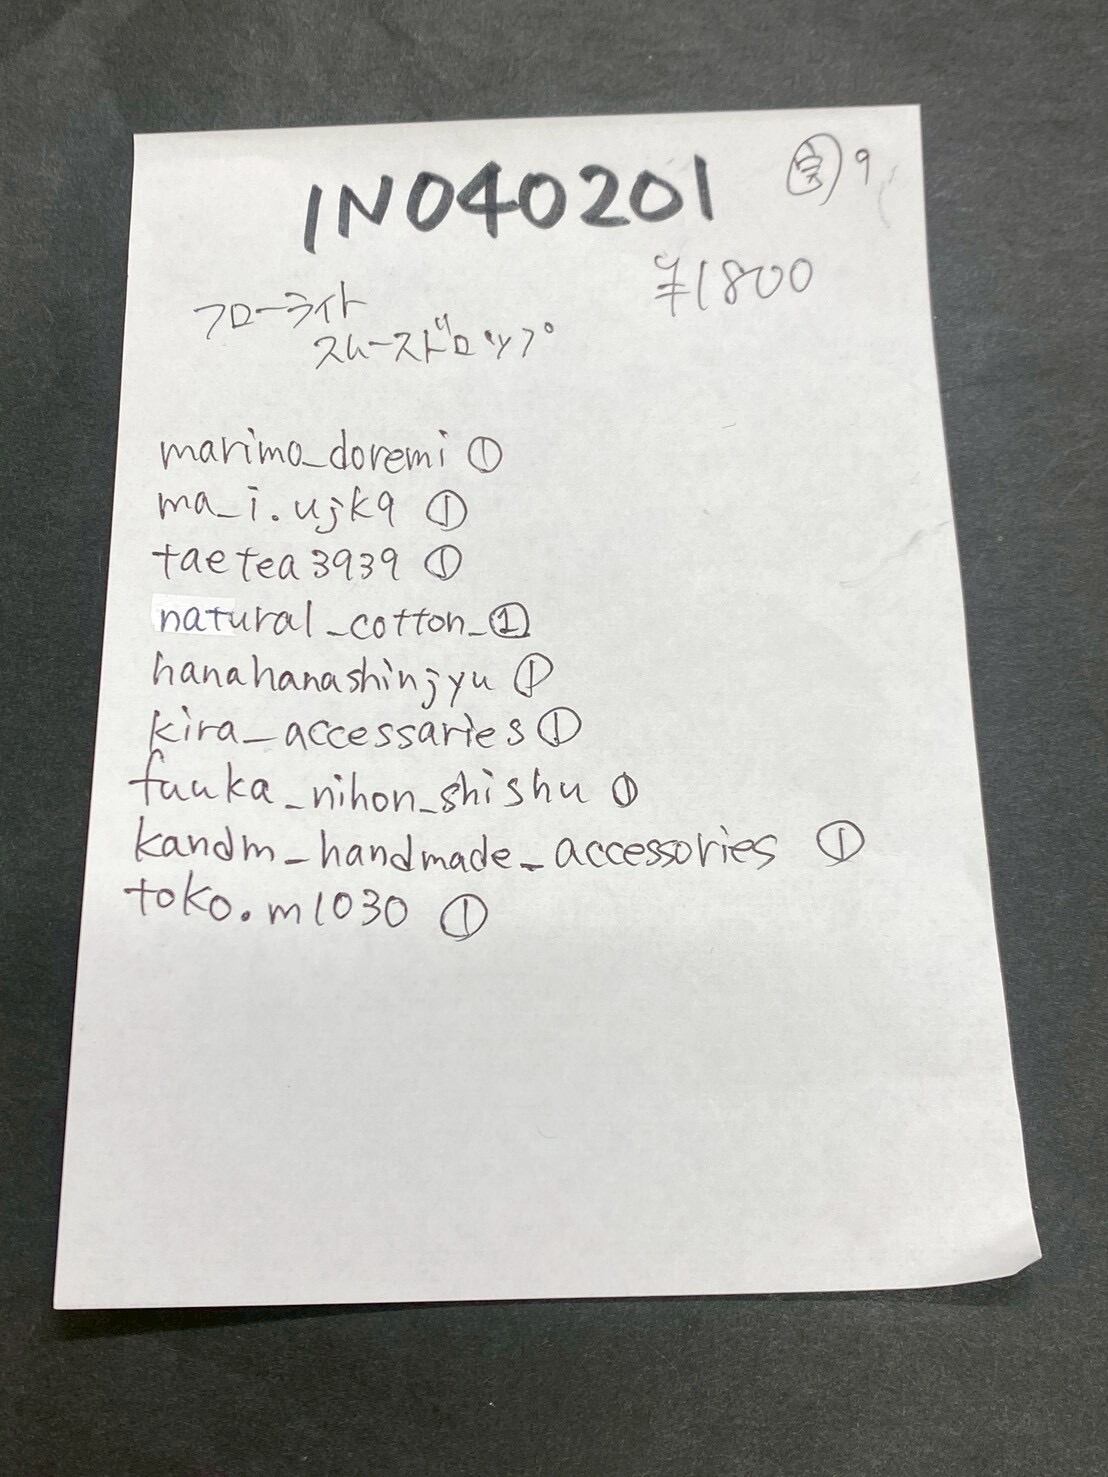 1N040201 ㊢ 9
¥1800
フローライト
スムースドロップ
marimo_doremi ①
ma_i.ujk9 ①
taetea3939 ①
natural_cotton_①
hanahanashinjyu ①
kira_accessaries ①
fuuka_nihon_shishu ①
kandm_handmade_accessories ①
toko.m1030 ①